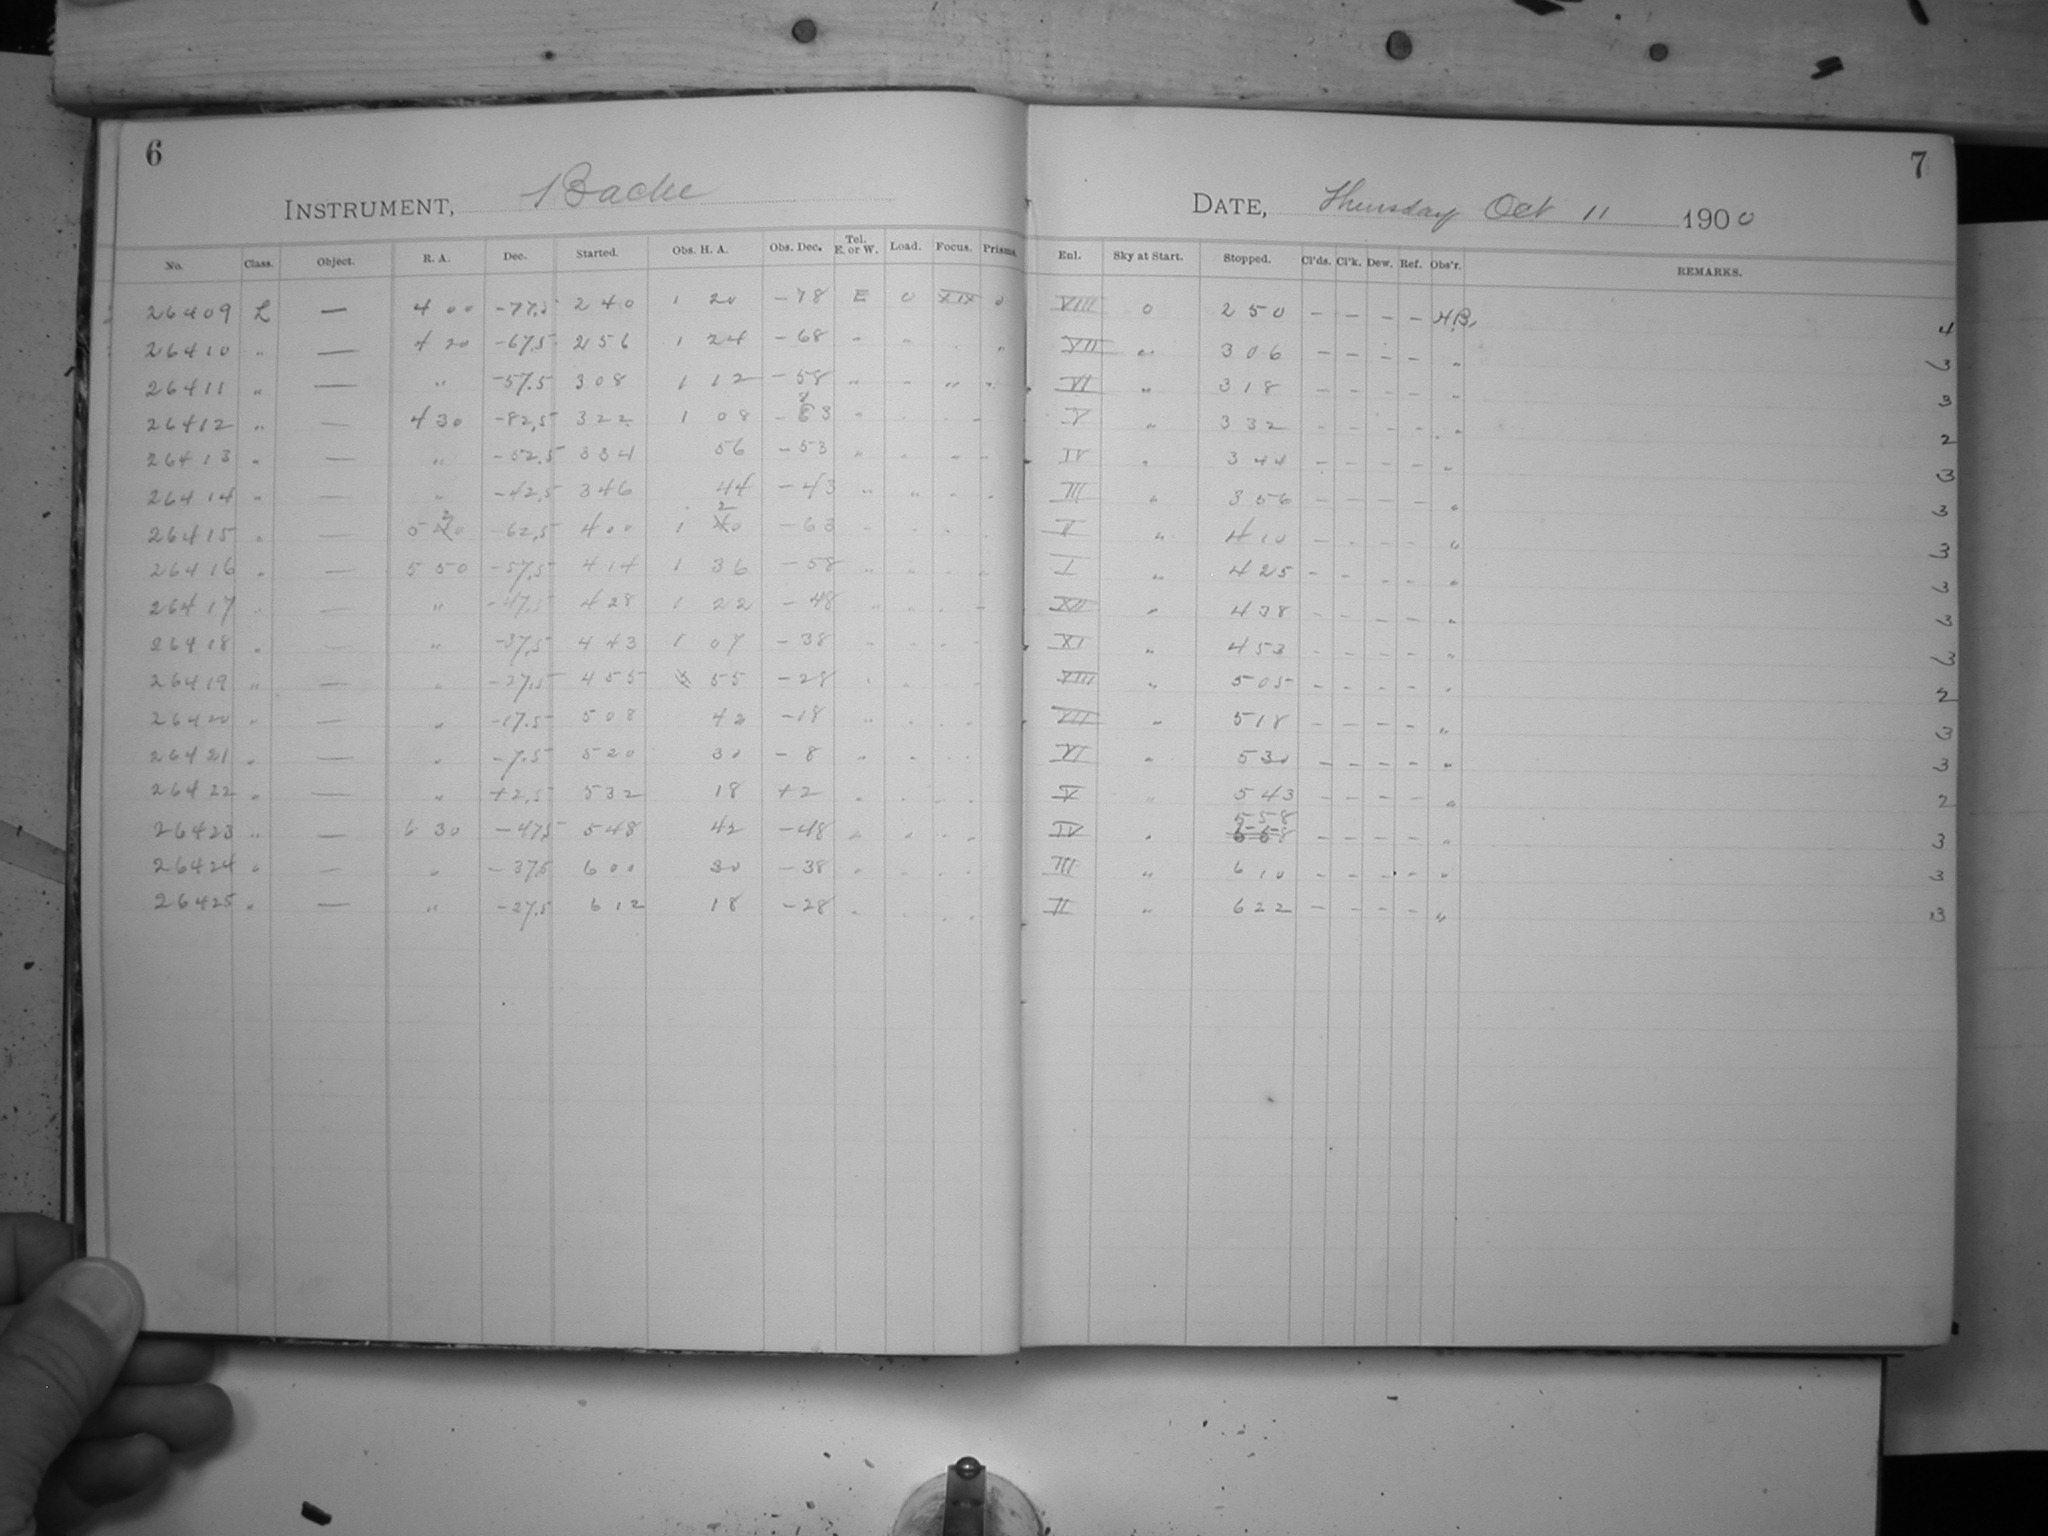 6
INSTRUMENT, Bache
No. Class. Object. R. A. Dec. Started. Obs. H. A. Obs. Dec. Tel. E. or W. Load. Focus. Prisms.
26409 L — 4 00 -77.5 2 40 1 20 -78 E 0 XIX 0
26410 " — 4 20 -67.5 2 56 1 24 -68 " " "
26411 " — " -57.5 3 08 1 12 -58 " " " "
26412 " — 4 30 -82.5 3 22 1 08 -83 "
26413 " — " -52.5 3 34 56 -53 " " " "
26414 " — " -42.5 3 46 44 -43 " " " "
26415 " — 5 20 -62.5 4 00 1 20 -63 " "
26416 " — 5 50 -57.5 4 14 1 36 -58 " " " "
26417 " — " -47.5 4 28 1 22 -48 " "
26418 " — " -37.5 4 43 1 07 -38 " "
26419 " — " -27.5 4 55 55 -28 " "
26420 " — " -17.5 5 08 42 -18 " "
26421 " — " -7.5 5 20 30 -8 " "
26422 " — " +2.5 5 32 18 +2 " "
26423 " — 6 30 -47.5 5 48 42 -48 " " " "
26424 " — " -37.5 6 00 30 -38 " "
26425 " — " -27.5 6 12 18 -28 " "
7
DATE, Thursday Oct 11 1900
Enl. Sky at Start. Stopped. Cl'ds. Cl'k. Dew. Ref. Obs'r. REMARKS.
VIII 0 2 50 — — — — H.B. 4
VII " 3 06 — — — — " 3
VI " 3 18 — — — — " 3
V " 3 32 — — — — " 2
IV " 3 44 — — — — " 3
III " 3 56 — — — — " 3
II " 4 10 — — — — " 3
I " 4 25 — — — — " 3
XII " 4 38 — — — — " 3
XI " 4 53 — — — — " 3
XIII " 5 05 — — — — " 2
VII " 5 18 — — — — " 3
VI " 5 30 — — — — " 3
V " 5 43 — — — — " 2
IV " 5 58 — — — — " 3
III " 6 10 — — — — " 3
II " 6 22 — — — — " 3